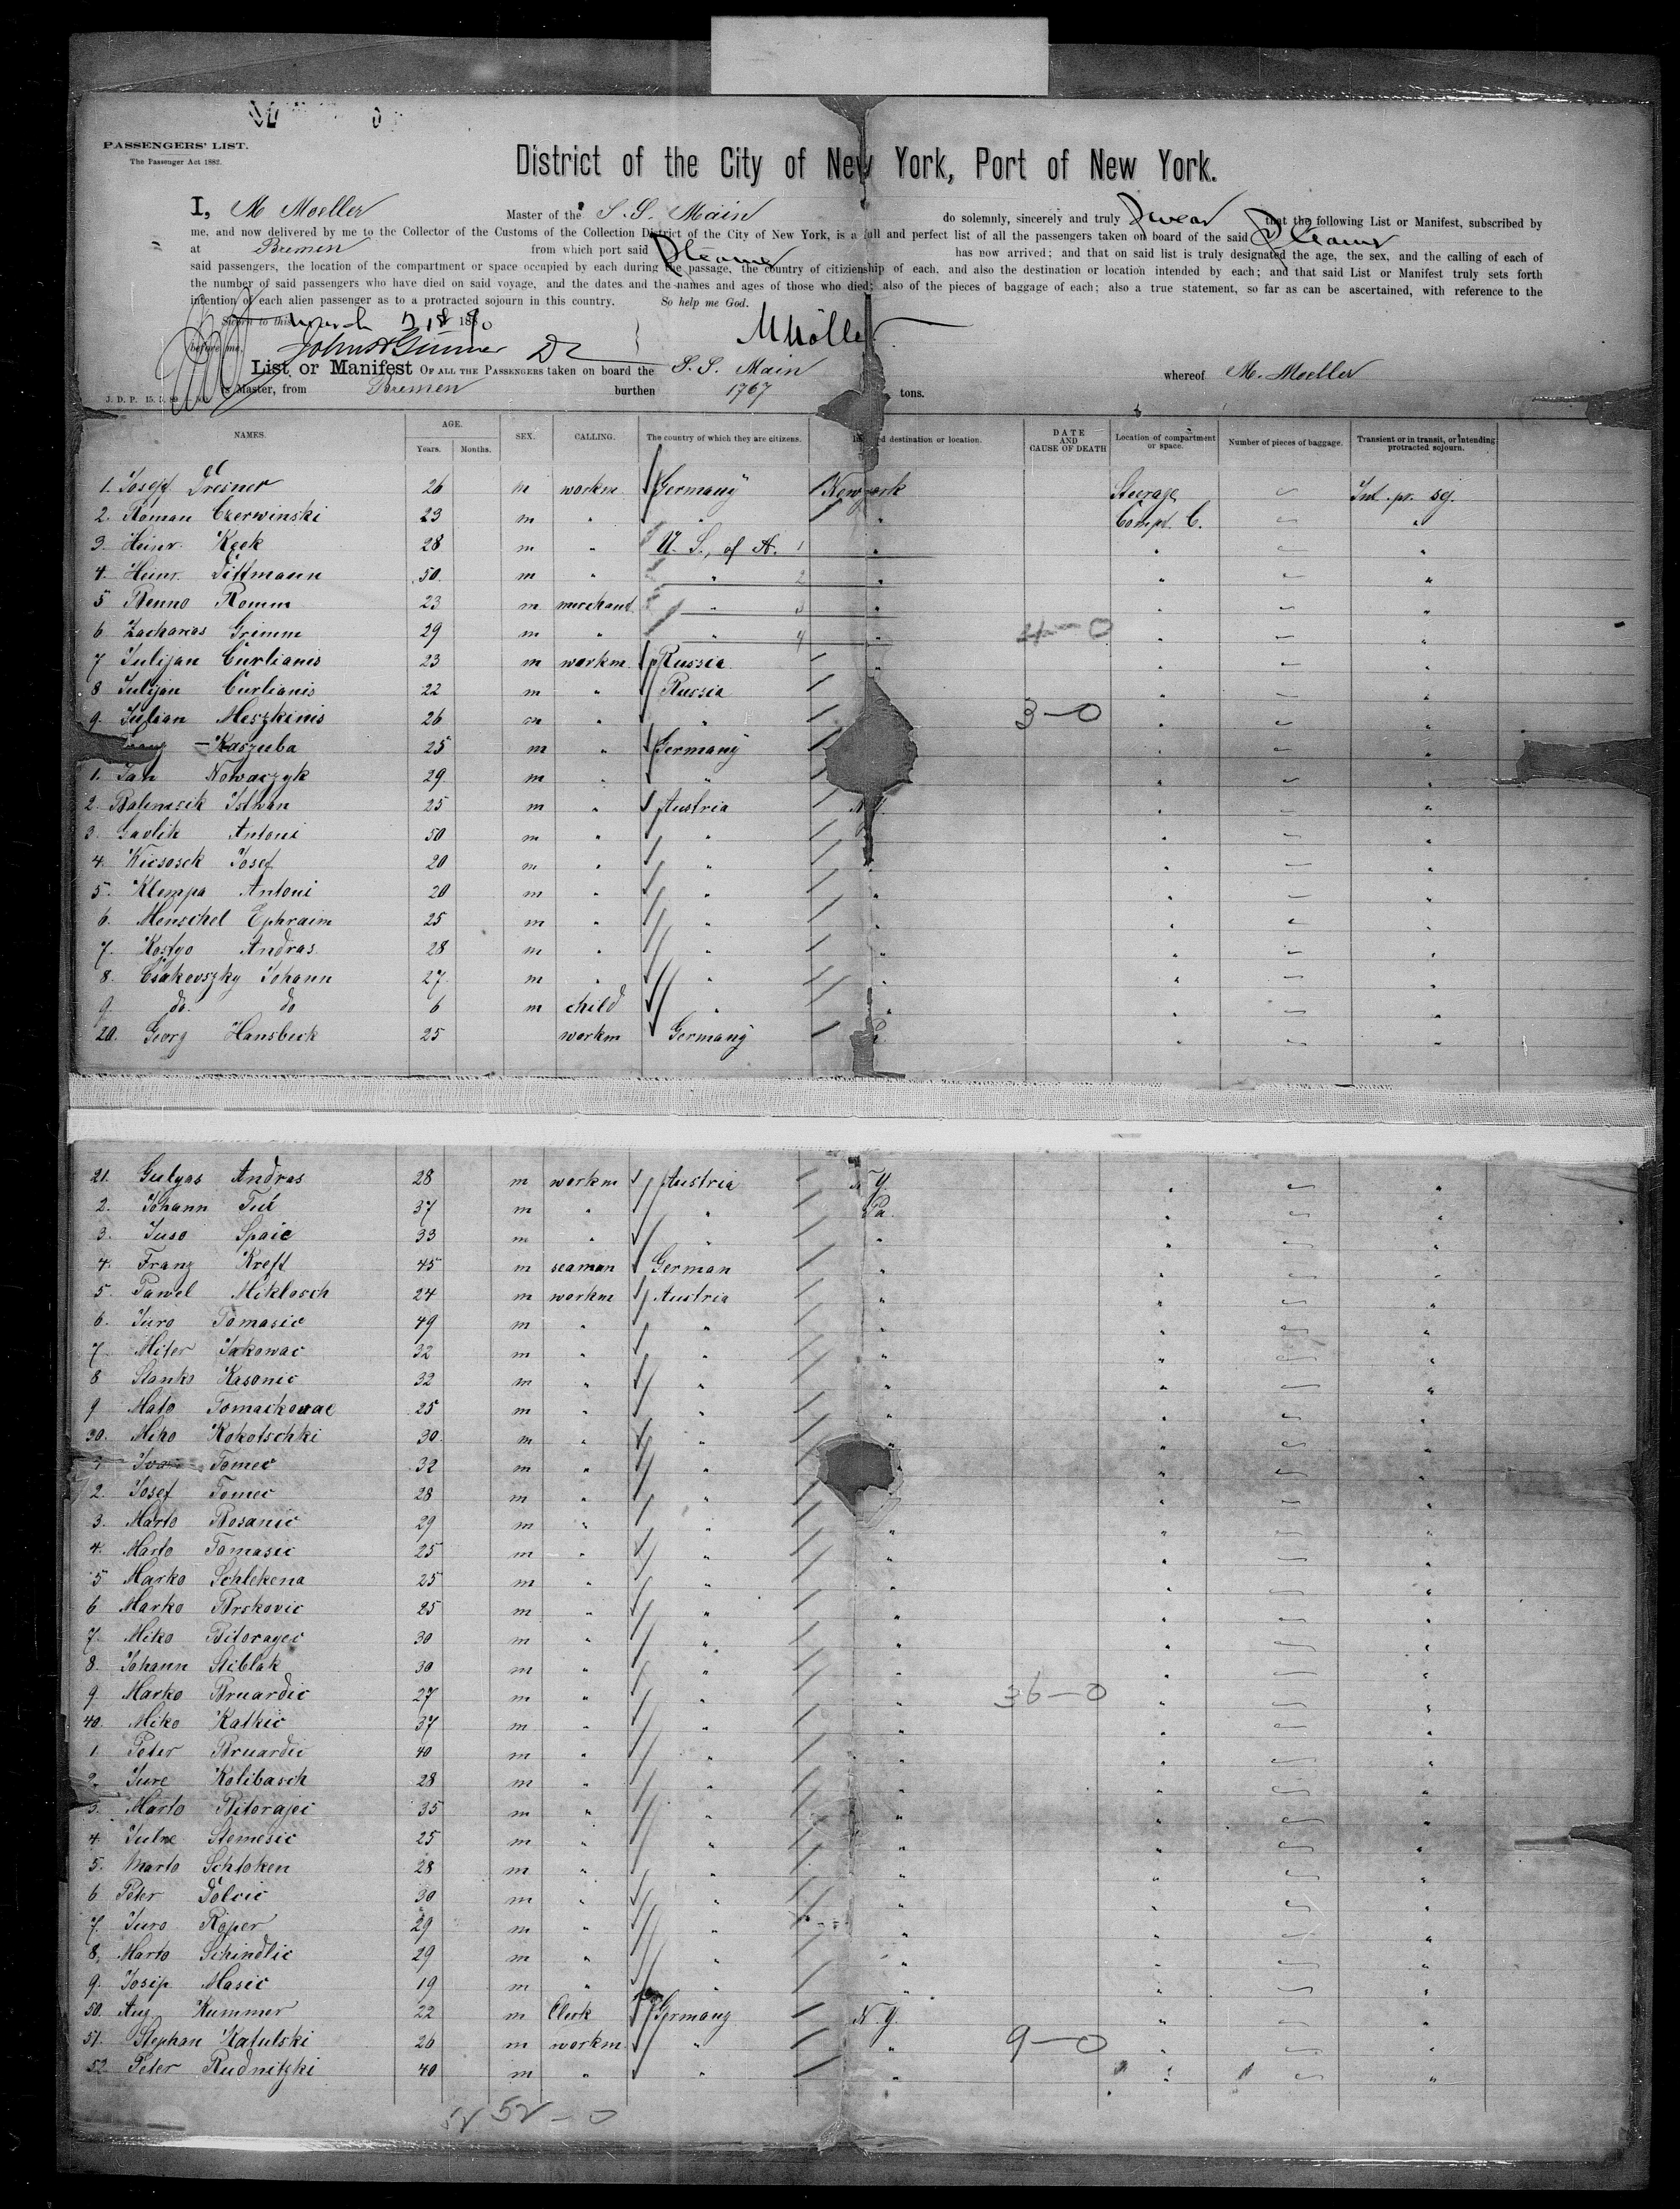 PASSENGERS' LIST.
The Passenger Act 1882.
District of the City of New York, Port of New York.
I, M Moeller Master of the S. S. Main do solemnly, sincerely and truly swear that the following List or Manifest, subscribed by
me, and now delivered by me to the Collector of the Customs of the Collection District of the City of New York, is a full and perfect list of all the passengers taken on board of the said Steamer
at Bremen from which port said Steamer has now arrived; and that on said list is truly designated the age, the sex, and the calling of each of
said passengers, the location of the compartment or space occupied by each during the passage, the country of citizenship of each, and also the destination or location intended by each; and that said List or Manifest truly sets forth
the number of said passengers who have died on said voyage, and the dates and the names and ages of those who died; also of the pieces of baggage of each; also a true statement, so far as can be ascertained, with reference to the
intention of each alien passenger as to a protracted sojourn in this country. So help me God.
Sworn to this March 188
before me, MMöller
List or Manifest OF ALL THE PASSENGERS taken on board the S. S. Main whereof M. Moeller
is Master, from Bremen burthen 1767 tons.
NAMES. AGE. Years. Months. SEX. CALLING. The country of which they are citizens. destination or location. DATE AND CAUSE OF DEATH Location of compartment or space. Number of pieces of baggage. Transient or in transit, or intending protracted sojourn.
1. Josef Dresner 26 m workm Germany New york Steerage Int. pr. sej.
2. Roman Czerwinski 23 m " " " Compt. C. "
3. Heinr. Keek 28 m " U. S. of A. 1 " " "
4. Heinr. Dittmann 50 m " " 2 " " "
5 Benno Romm 23 m merchant " 3 " " "
6 Zacharias Grimm 29 m " " 4 " 4-0 " "
7 Julijan Curlianis 23 m workm Russia " " "
8 Julijan Curlianis 22 m " Russia " "
9. Julian Meszkinis 26 m " " 3-0 " "
Kaszuba 25 m " Germany " "
1. Jan Nowaczyk 29 m " " " "
2. Isthvan 25 m " Austria " "
3. Gavlik Antoni 50 m " " " "
4. Josef 20 m " " " "
5. Klempa Antoni 20 m " " " " "
6. Menschel Ephraim 25 m " " " " "
7. Kostyo Andras 28 m " " " " "
8. Csakovszky Johann 27 m " " " " "
9. do. do 6 m child " " " "
20. Georg Hansbeck 25 workm Germany " "
21. Gulyas Andras 28 m workm Austria N Y " "
2. Johann 37 m " " Pa " "
3. Juso Spaic 33 m " " " " "
4. Franz Kreft 45 m seaman German " " "
5. Pawel Miklosch 24 m workm Austria " " "
6. Juro Tomasic 49 m " " " " "
7. Miter Jakowac 32 m " " " " "
8 Stanko Kasonic 32 m " " " " "
9 Mato Tomackovac 25 m " " " " "
30. Miko Kokotschki 30 m " " " " "
Tomec 32 m " " " "
2. Josef Tomec 28 m " " " "
3. Marto Bosanic 29 m " " " " "
4. Marto Tomasic 25 m " " " " "
5 Marko Schlekena 25 m " " " " "
6 Marko Brskovic 25 m " " " " "
7. Miko Bitorayec 30 m " " " " "
8. Johann Stiblak 30 m " " " " "
9. Marko Bruardic 27 m " " " 36-0 " "
40. Miko Katkic 37 m " " " " "
1 Peter Bruardic 40 m " " " " "
2. Jure Kolibasch 28 m " " " " "
3. Marto Bitorajec 35 m " " " " "
4. Stemesic 25 m " " " " "
5. Marto Schtoken 28 m " " " " "
6 Peter Polcic 30 m " " " " "
7. Juro Röper 29 m " " " " "
8. Marto Schindlic 29 m " " " " "
9. Josip Masic 19 m " " " " "
50. Aug. Kummer 22 m Clerk Germany N. Y. " "
51. Stephan Katulski 26 m workm " " 9-0 " "
52 Peter Rudnitzki 40 m " " " " "
52 52-0